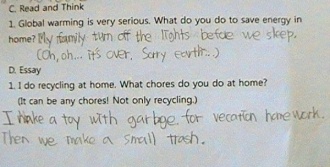 C. Read and Think
1. Global warming is very serious. What do you do to save energy in
home? My family turn off the lights before we sleep.
(Oh, oh... it's over. Sorry earth..)
D. Essay
1. I do recycling at home. What chores do you do at home?
(It can be any chores! Not only recycling.)
I make a toy with garbage for vecation homework.
Then we make a small trash.